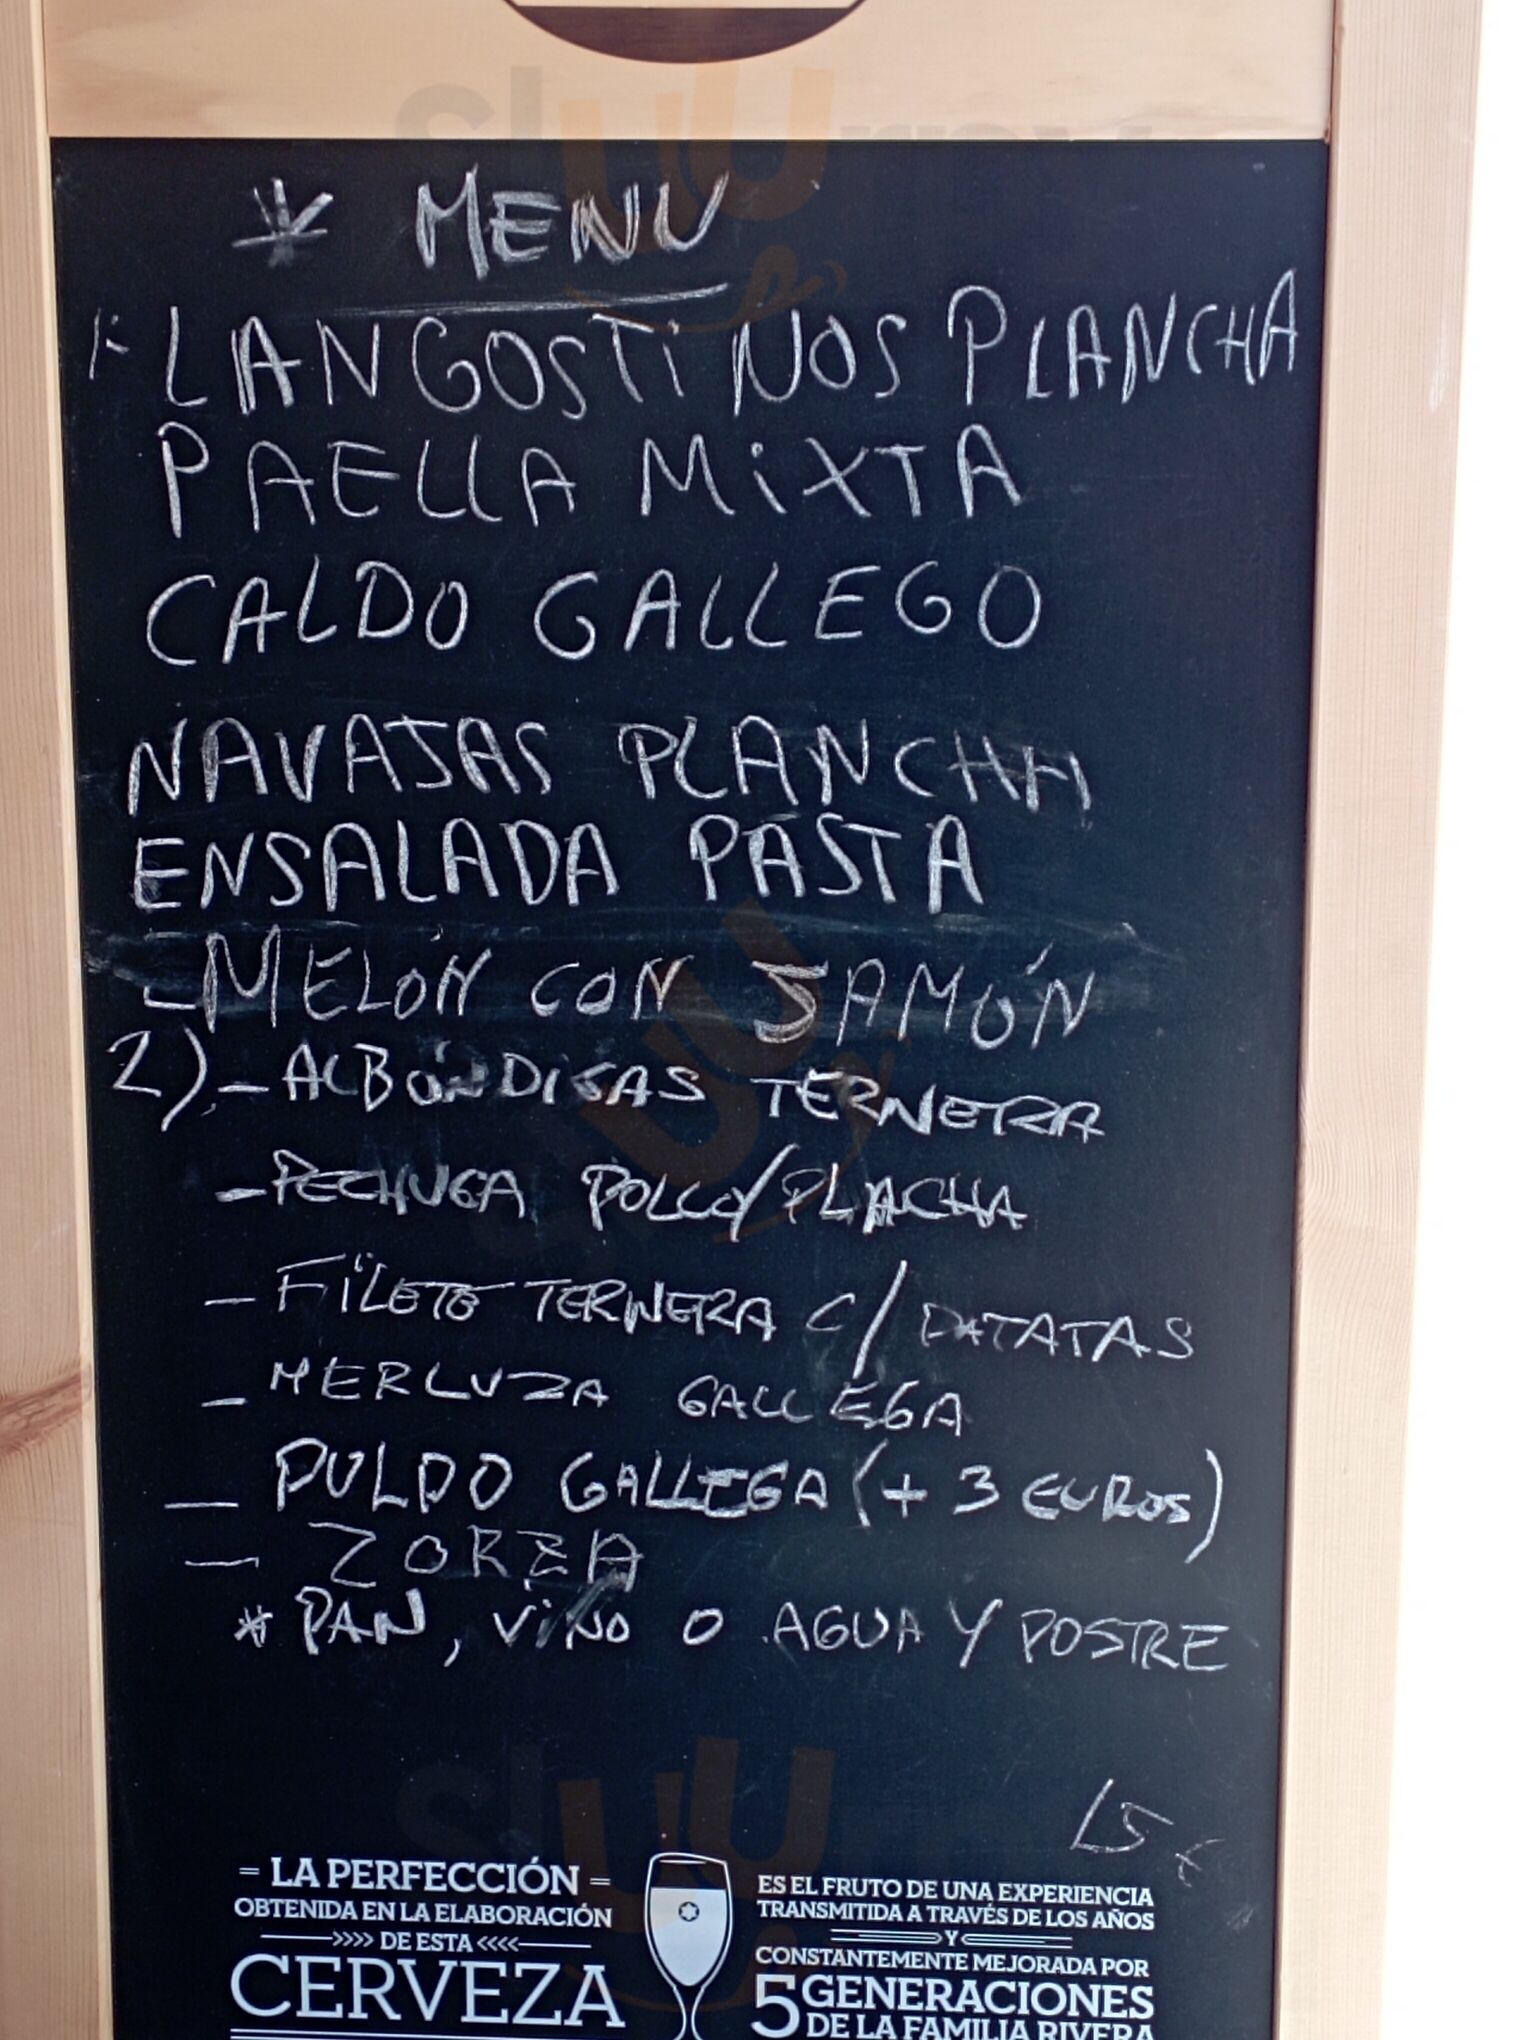 * MENU
LANGOSTINOS PLANCHA
PAELLA MiXTA
CALDO GALLEGO
NAVAJAS PLANCHA
ENSALADA PASTA
- MELÓN CON JAMÓN
2) - ALBÓNDIGAS TERNERA
- PECHUGA POLLO/PLACHA
- FiLETE TERNERA C/PATATAS
- MERLUZA GALLEGA
- PULPO GALLEGA (+ 3 EUROS)
- ZORZA
* PAN, ViNO O AGUA Y POSTRE
15 €
= LA PERFECCIÓN =
OBTENIDA EN LA ELABORACIÓN
>>>> DE ESTA <<<<
CERVEZA
ES EL FRUTO DE UNA EXPERIENCIA
TRANSMITIDA A TRAVÉS DE LOS AÑOS
Y
CONSTANTEMENTE MEJORADA POR
5 GENERACIONES
DE LA FAMILIA RIVERA